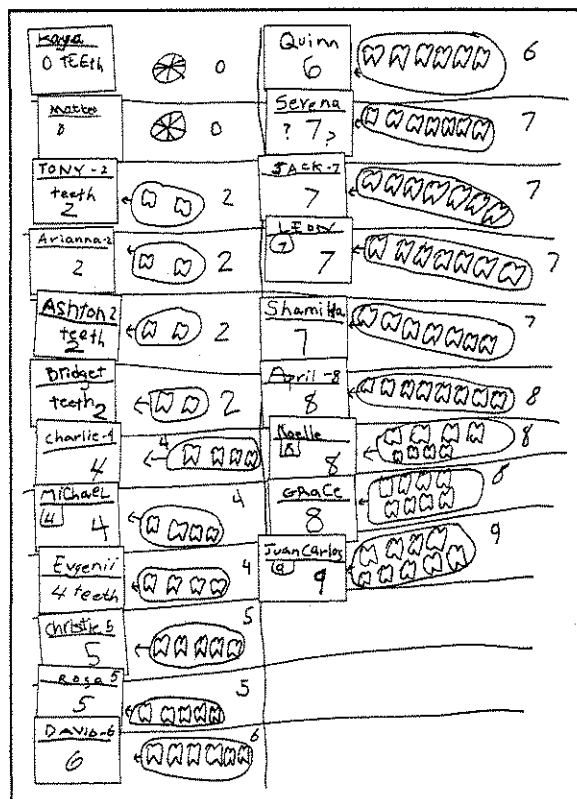 Kaya
0 TEEth 0
Matteo
0 0
TONY-2
teeth
2 2
Arianna-2
2 2
Ashton 2
teeth
2 2
Bridget
teeth 2 2
Charlie-4
4 4
MiChaeL
4 4 4
Evgenii
4 teeth 4
Christie 5
5 5
Rosa 5
5 5
DAViD-6
6 6
Quinn
6 6
Serena
? 7 ? 7
JACK-7
7 7
LEON
7 7 7
Shamitta
7 7
April-8
8 8
Noelle
8 8 8
GRaCe
8 8
JuanCarlos
9 9 9